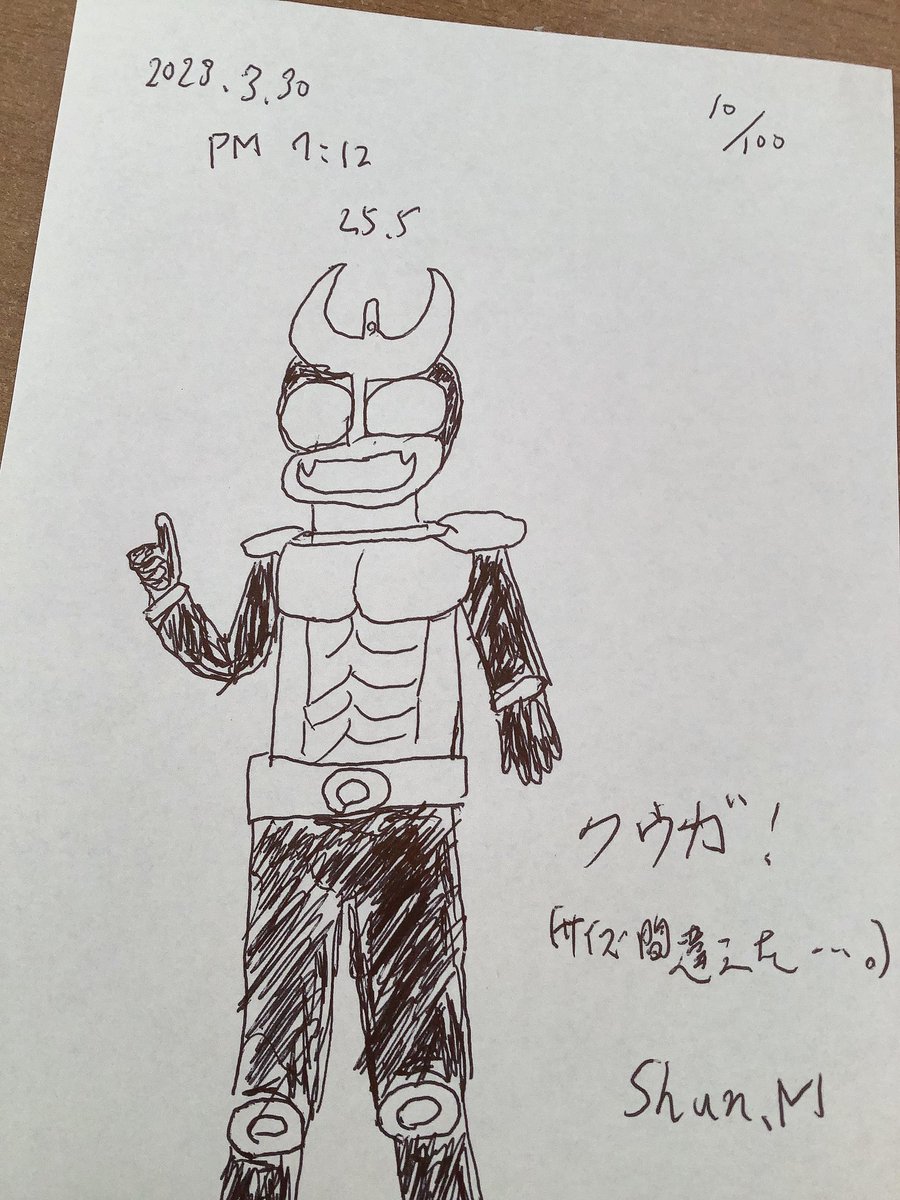 2023.3.30
10/100
PM 7:12
25.5
クウガ!
(サイズ間違えた…。)
Shun.M